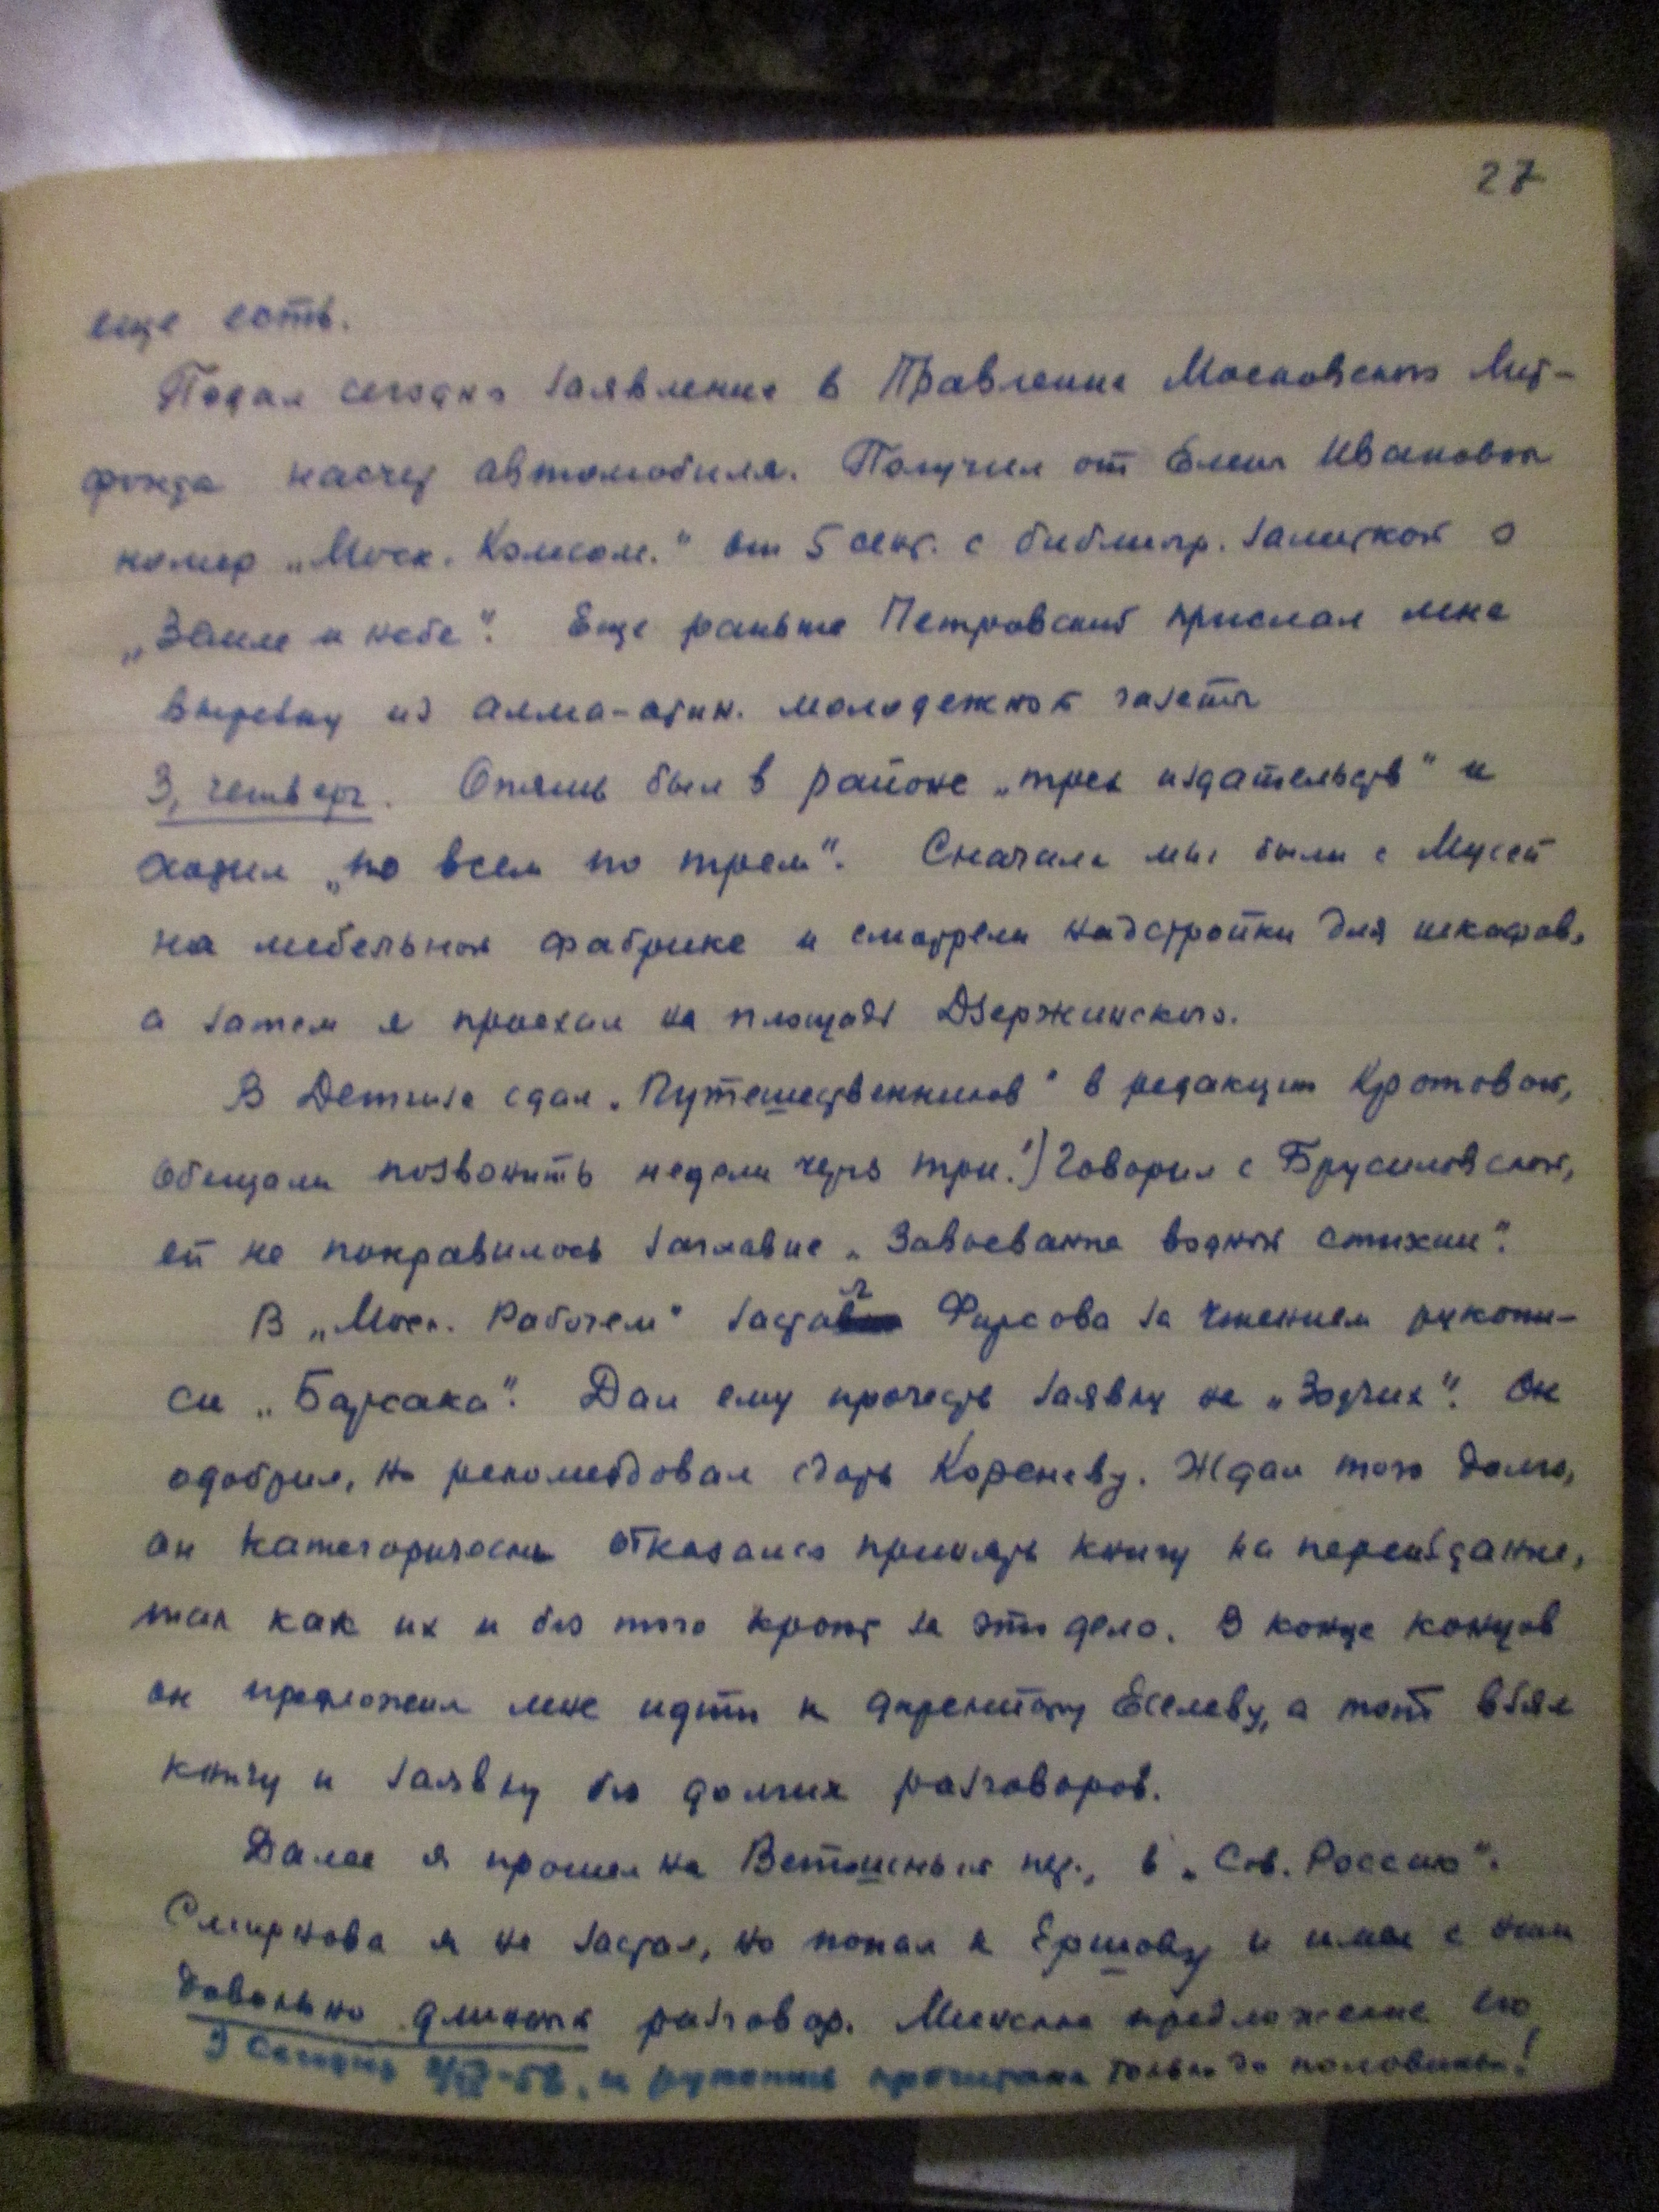 27
еще есть.
Подал сегодня заявление в Правление Московского Лит-
фонда насчет автомобиля. Получил от Елены Ивановны
номер „Моск. Комсом." от 5 сент. с библиогр. заметкой о
„Земле и небе". Еще раньше Петровский прислал мне
вырезку из алма-атин. молодежной газеты
3, четверг. Опять был в районе „трех издательств" и
ходил „по всем по трем". Сначала мы были с Мусей
на мебельной фабрике и смотрели надстройки для шкафов,
а затем я проехал на площадь Дзержинского.
В Детгизе сдал „Путешественников" в редакцию Кротовой,
обещали позвонить недели через три.¹) Говорил с Брусиловской,
ей не понравилось заглавие „Завоевание водной стихии".
В „Моск. Рабочем" застал Фирсова за чтением рукопи-
си „Барсака". Дал ему прочесть заявку на „Зодчих". Он
одобрил, но рекомендовал сдать Кореневу. Ждал того долго,
он категорически отказался принять книгу на переиздание,
так как их и без того кроют за это дело. В конце концов
он предложил мне идти к директору Еселеву, а тот взял
книгу и заявку без долгих разговоров.
Далее я прошел на Ветошный пер., в „Сов. Россию".
Смирнова я не застал, но попал к Ершову и имел с ним
довольно длинный разговор. Мы предложение его
¹) Сегодня и рукопись прочитана только до половины!